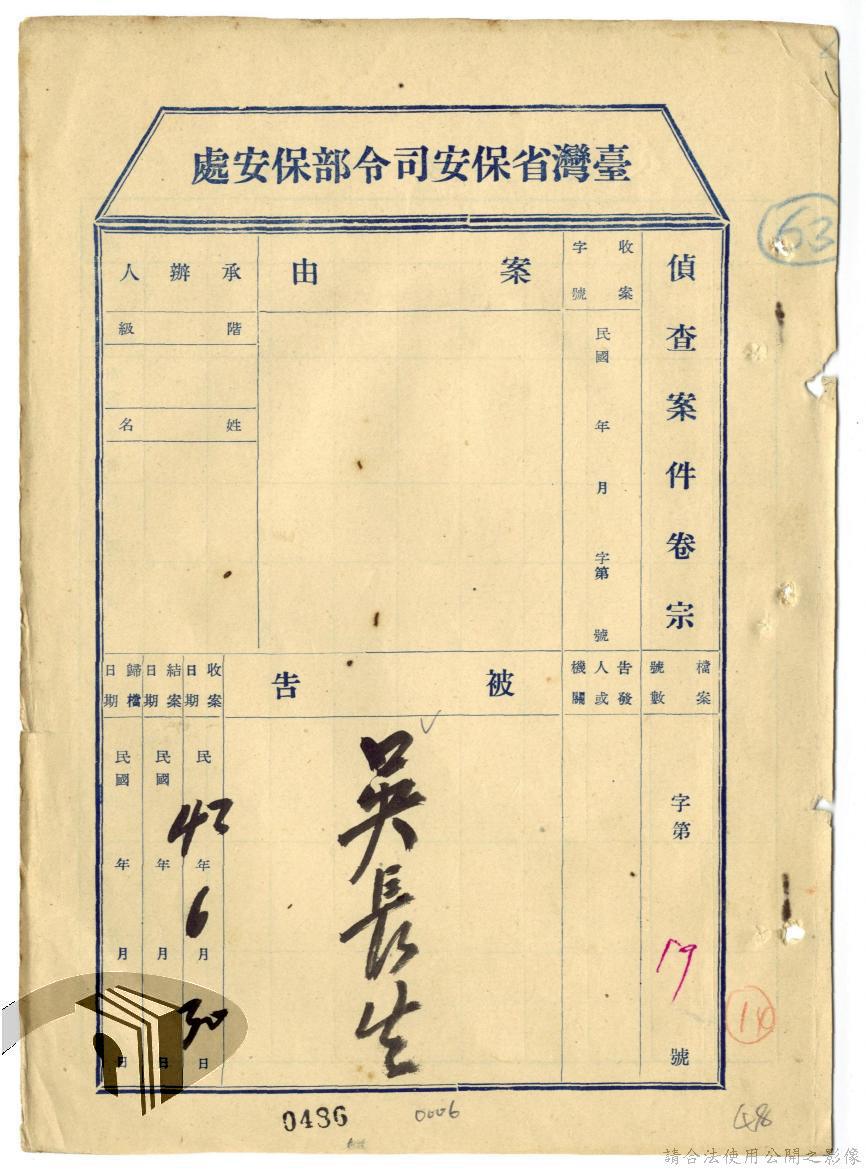 臺灣省保安司令部保安處
63
偵查案件卷宗
收案字號
民國 年 月 字第 號
案由
承辦人
階級
姓名
檔案號數
字第 19 號
告發人或機關
被告
吳長生
收案日期
民 42 年 6 月 30 日
結案日期
民國 年 月 日
歸檔日期
民國 年 月 日
14
0486
0006
請合法使用公開之影像